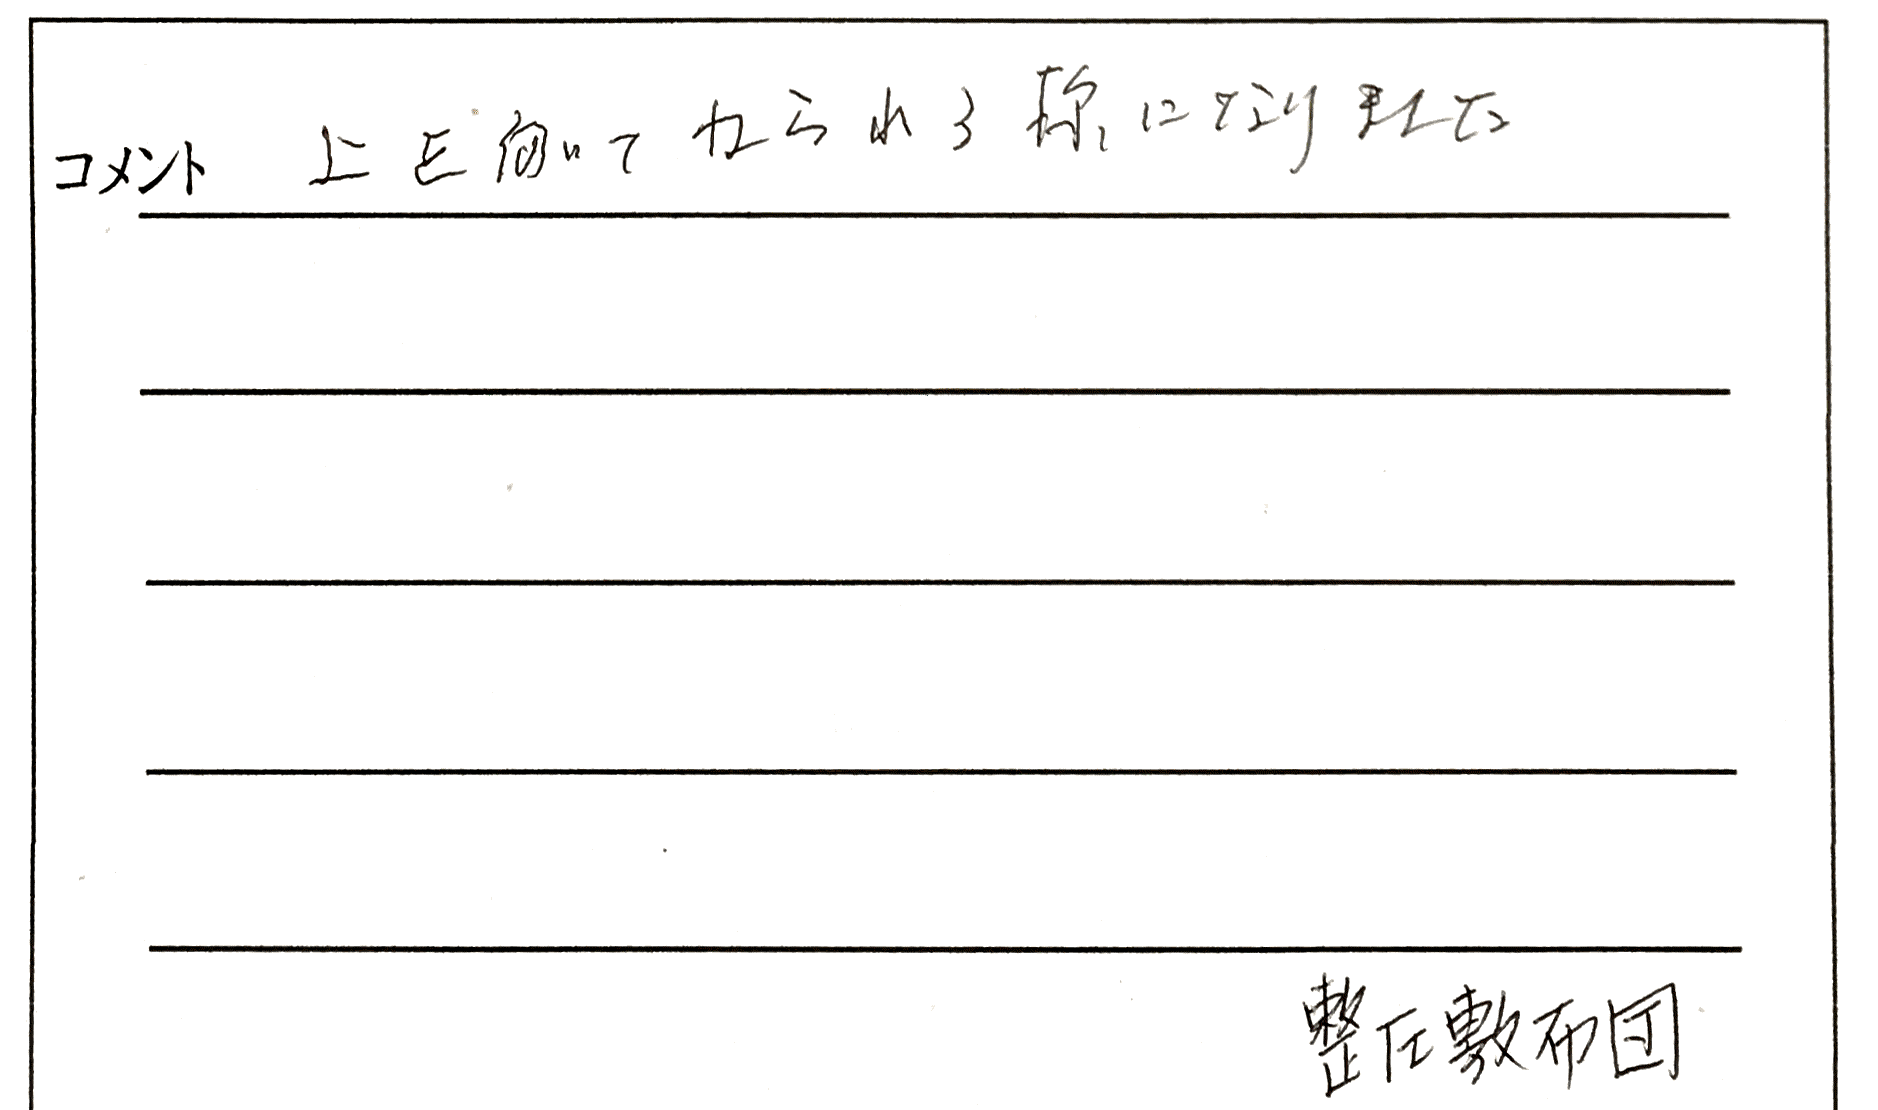 コメント 上を向いてねられる様になりました
整圧敷布団